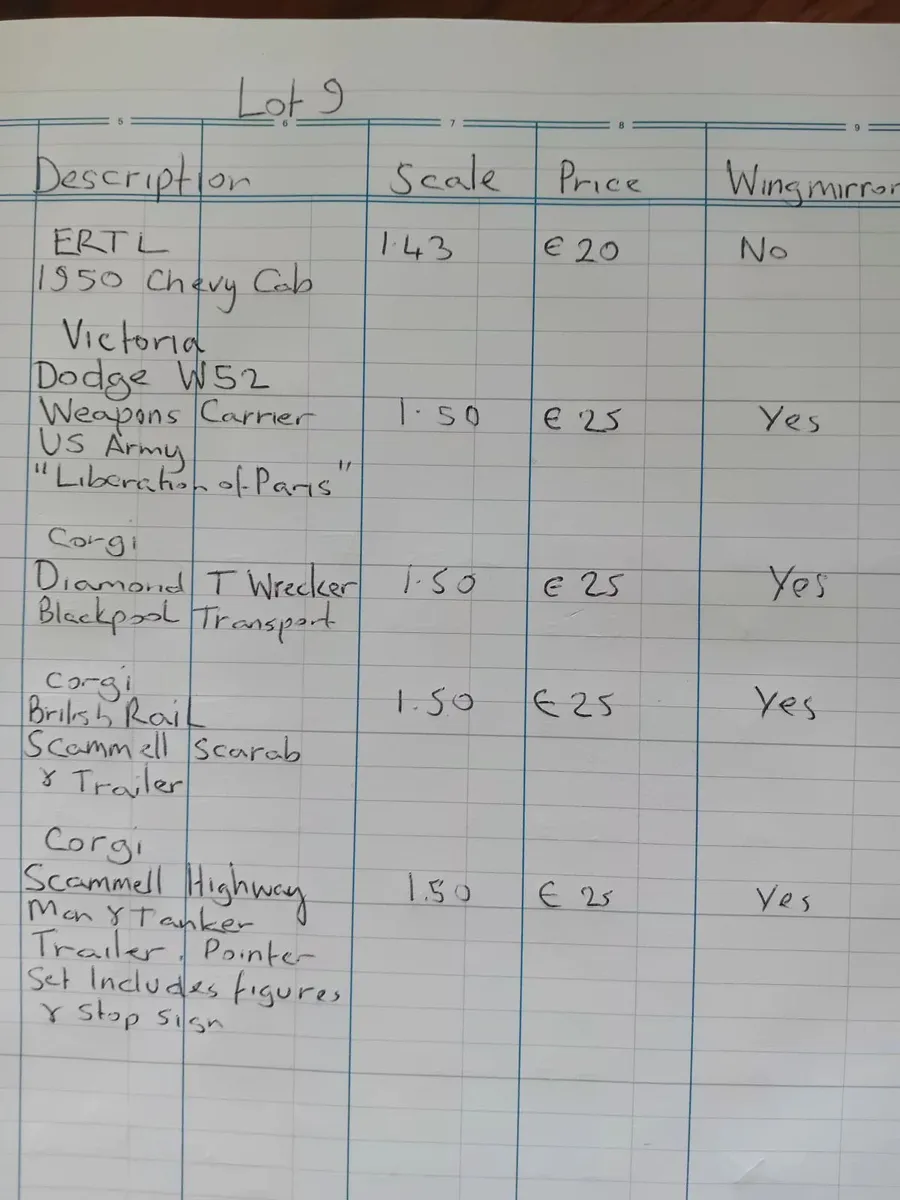 Lot 9
5 6 7 8 9
Description Scale Price Wingmirror
ERTL 1.43 € 20 No
1950 Chevy Cab
Victoria
Dodge W52
Weapons Carrier 1.50 € 25 Yes
US Army
"Liberation of Paris"
Corgi
Diamond T Wrecker 1.50 € 25 Yes
Blackpool Transport
Corgi
British Rail 1.50 € 25 Yes
Scammell Scarab
& Trailer
Corgi
Scammell Highway 1.50 € 25 Yes
Man & Tanker
Trailer. Pointer
Set Includes figures
& Stop Sign